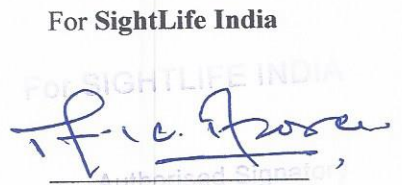 For SightLife India
For SIGHTLIFE INDIA
Authorised Signatory